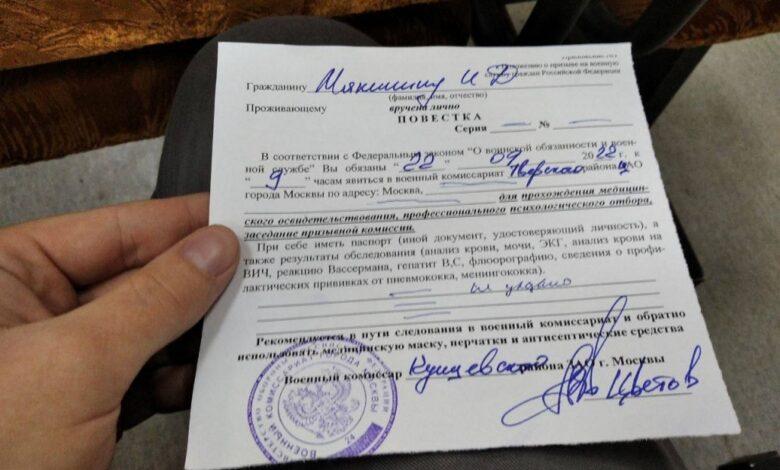 к Положению о призыве на военную
службу граждан Российской Федерации
Гражданину Мякшину И Д
(фамилия, имя, отчество)
Проживающему вручена лично
ПОВЕСТКА
Серия № 
В соответствии с Федеральным законом "О воинской обязанности и воен-
ной службе" Вы обязаны "22" 09 2022 г., к
"9" часам явиться в военный комиссариат Тверского района ЦАО
города Москвы по адресу: Москва,
для прохождения медицин-
ского освидетельствования, профессионального психологического отбора,
заседание призывной комиссии.
При себе иметь паспорт (иной документ, удостоверяющий личность), а
также результаты обследования (анализ крови, мочи, ЭКГ, анализ крови на
ВИЧ, реакцию Вассермана, гепатит В,С, флюорографию, сведения о профи-
лактических прививках от пневмококка, менингококка).
Рекомендуется в пути следования в военный комиссариат и обратно
использовать медицинскую маску, перчатки и антисептические средства
Военный комиссар района ЗАО г. Москвы
Цветов
ВОЕННЫЙ КОМИССАРИАТ ГОРОДА МОСКВЫ
24